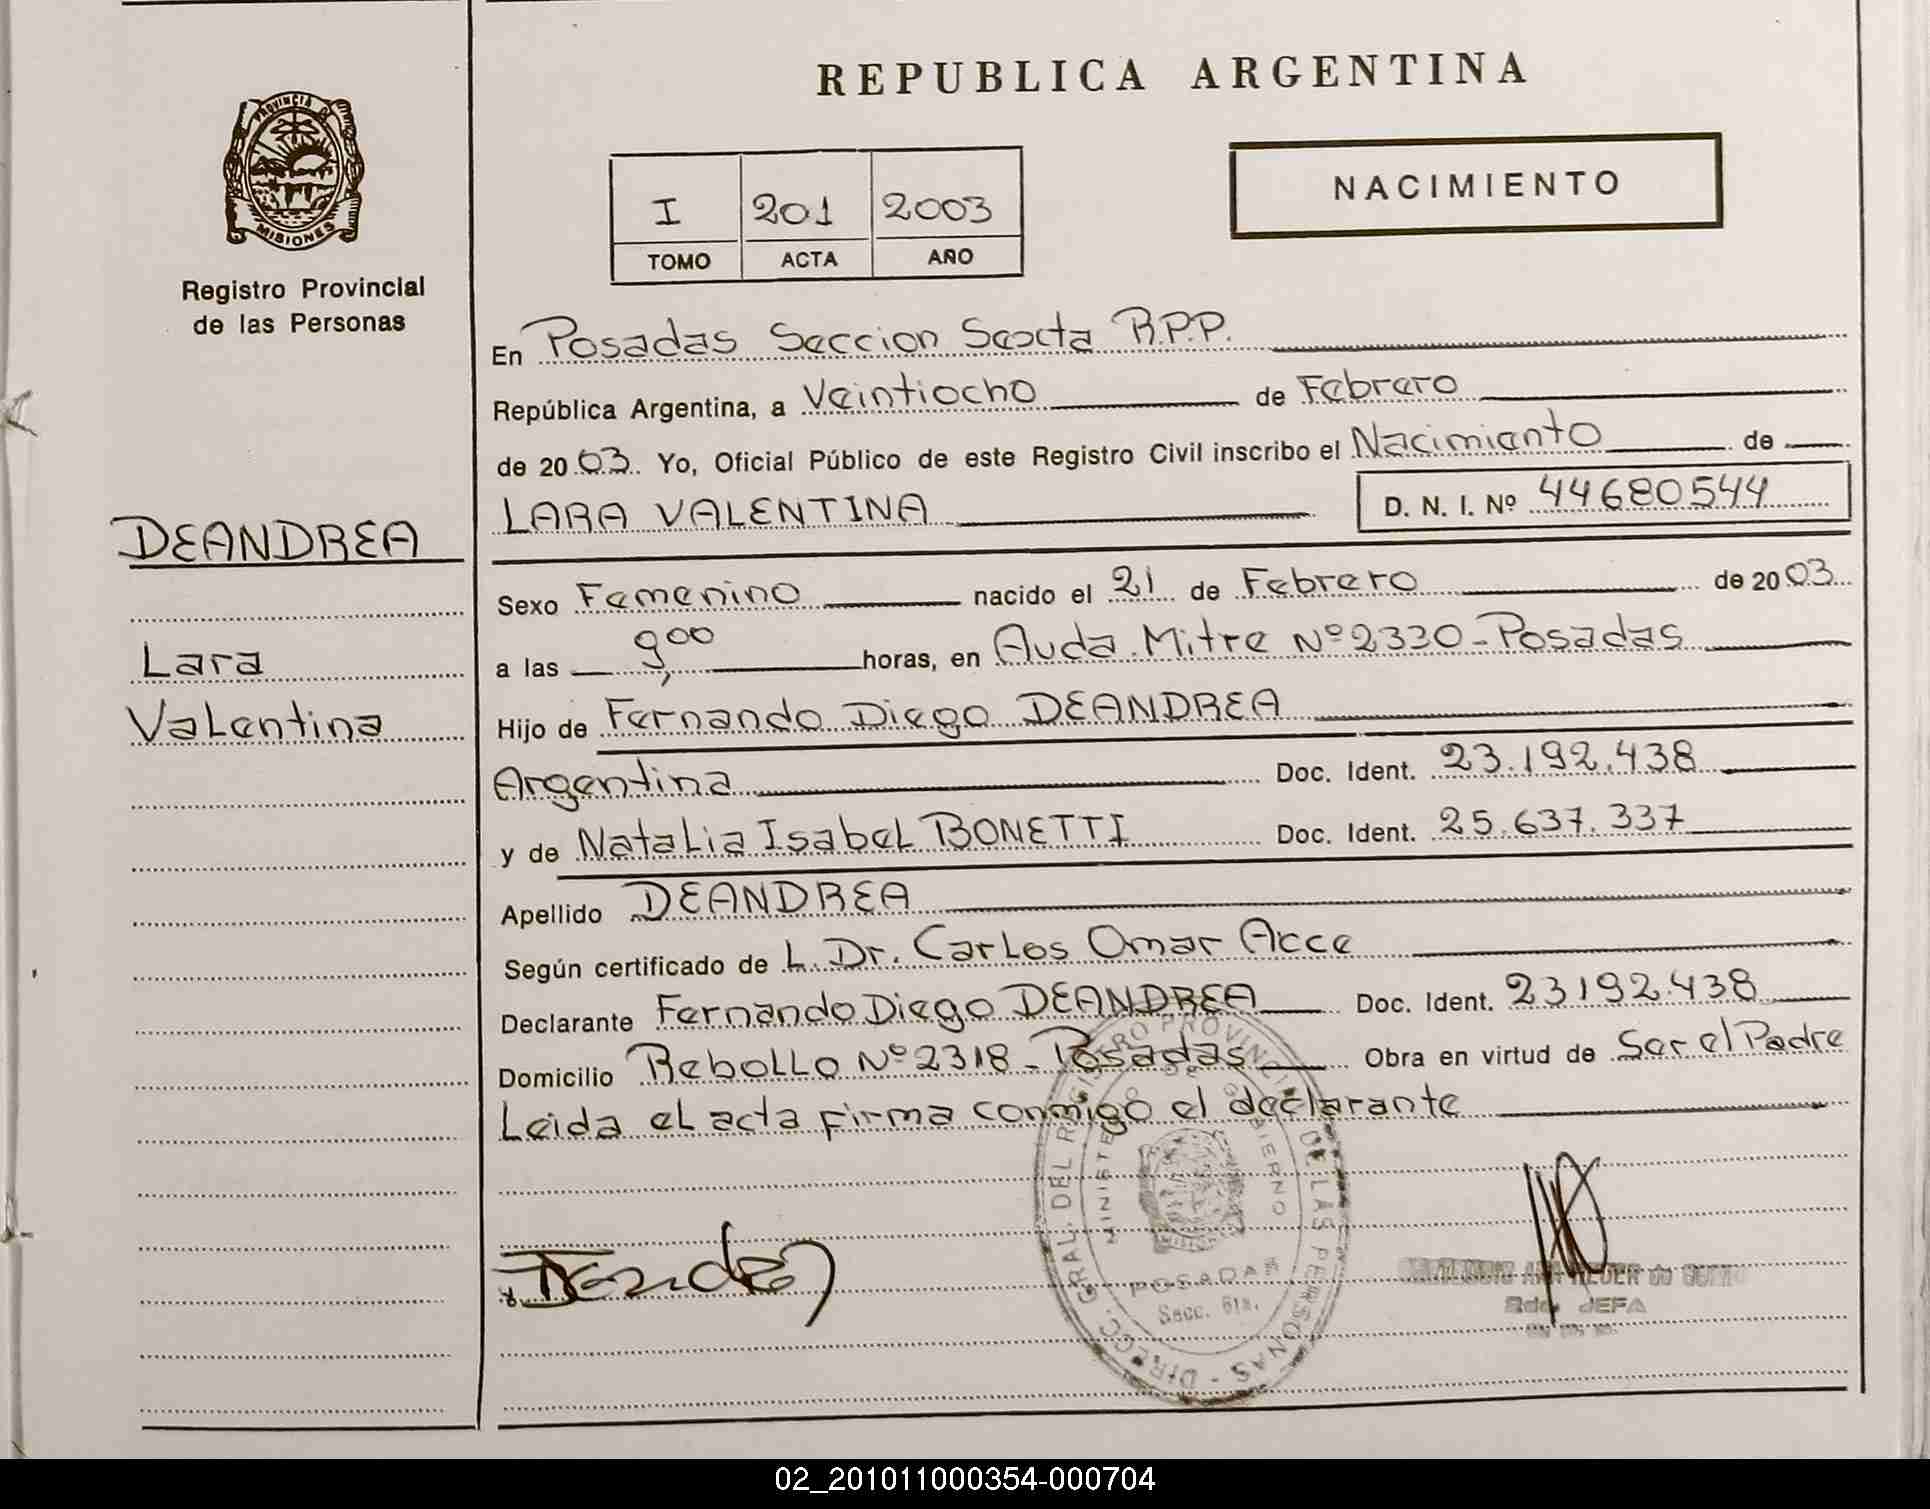 REPUBLICA ARGENTINA
PROVINCIA DE
MISIONES
Registro Provincial
de las Personas
I 201 2003
TOMO ACTA AÑO
NACIMIENTO
DEANDREA
Lara
Valentina
En Posadas Seccion Sexta R.P.P.
República Argentina, a Veintiocho de Febrero
de 2003. Yo, Oficial Público de este Registro Civil inscribo el Nacimiento de
LARA VALENTINA D. N. I. Nº 44680544
Sexo Femenino nacido el 21 de Febrero de 2003
a las 9,00 horas, en Avda. Mitre Nº 2330-Posadas
Hijo de Fernando Diego DEANDREA
Argentina Doc. Ident. 23.192.438
y de Natalia Isabel BONETTI Doc. Ident. 25.637.337
Apellido DEANDREA
Según certificado de L. Dr. Carlos Omar Acce
Declarante Fernando Diego DEANDREA Doc. Ident. 23192.438
Domicilio Rebollo Nº 2318 - Posadas Obra en virtud de Ser el Padre
Leida el acta firma conmigo el declarante
DIREC. GRAL. DEL REGISTRO PROVINCIAL DE LAS PERSONAS
MINISTERIO DE GOBIERNO
POSADAS
Secc. 6ta.
JEFA
02_201011000354-000704